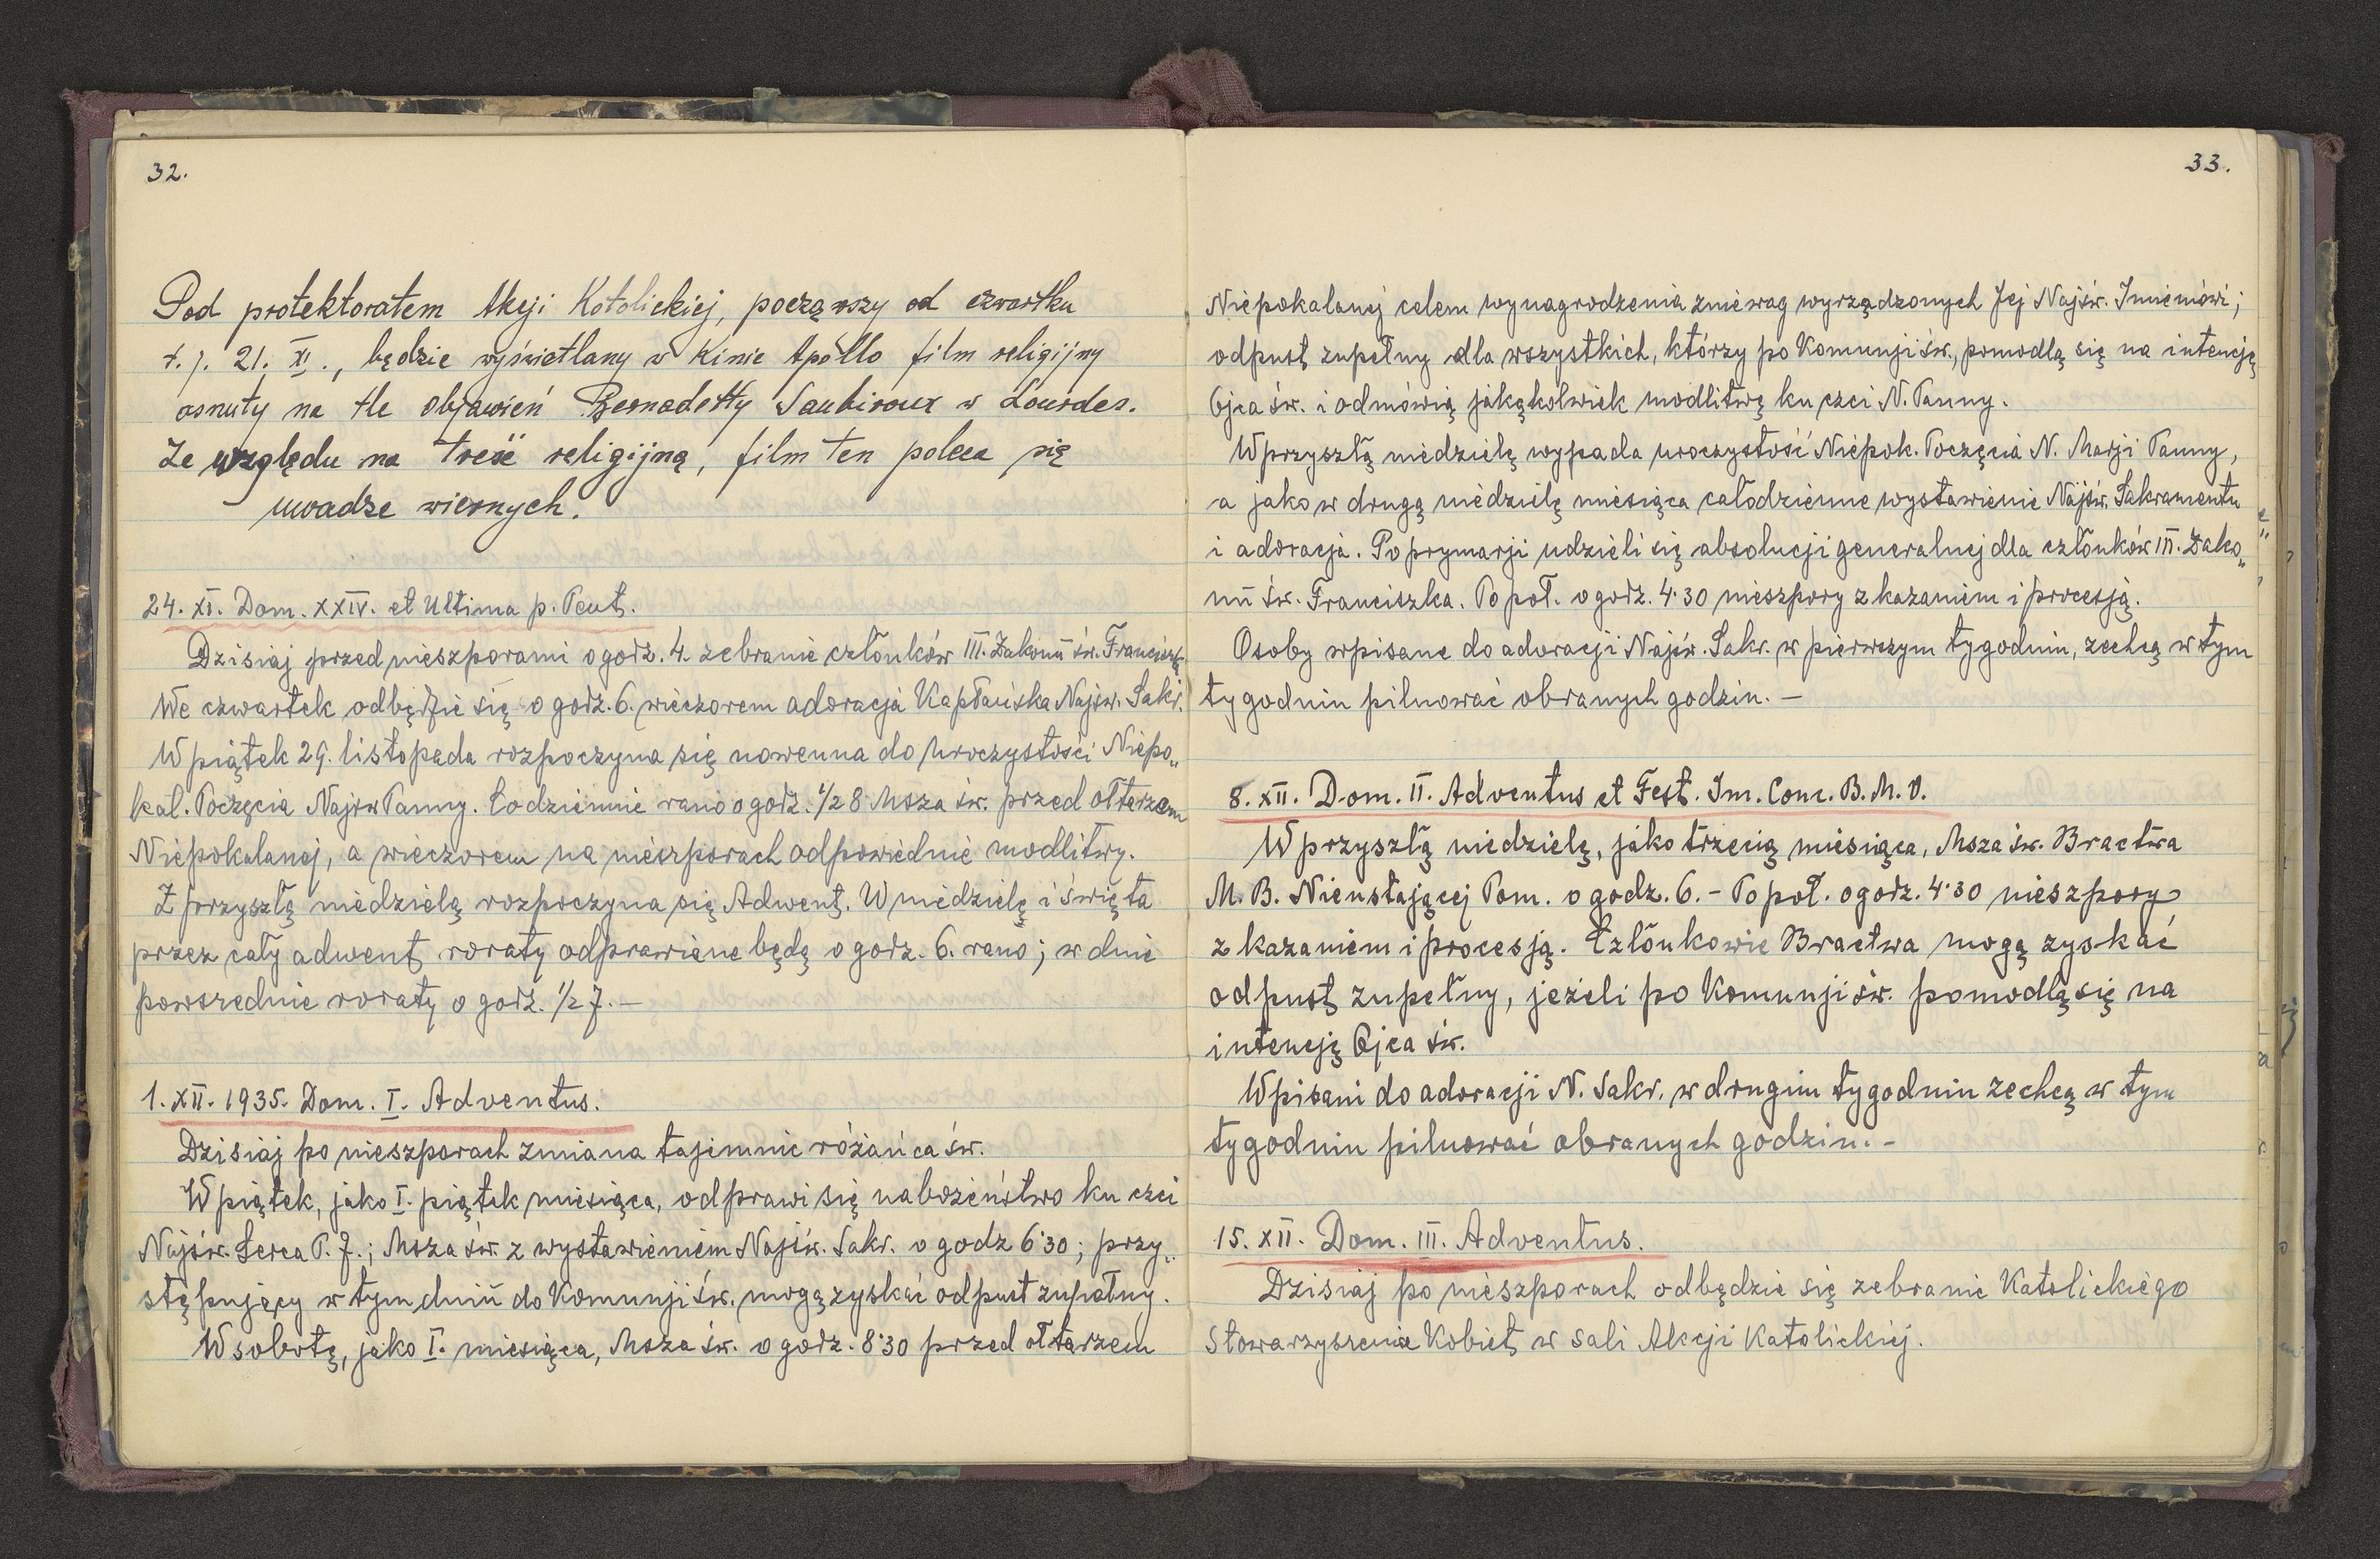 32.
Pod protektoratem Akcji Katolickiej, począwszy od czwartku
t. j. 21. XI., będzie wyświetlany w Kinie Apollo film religijny
osnuty na tle objawień Bernadetty Saubiroux w Lourdes.
Ze względu na treść religijną, film ten poleca się
uwadze wiernych.
24. XI. Dom. XXIV. et Ultima p. Pent.
Dzisiaj przed nieszporami o godz. 4. zebranie członków III. Zakonu św. Franciszk.
We czwartek odbędzie się o godz. 6. wieczorem adoracja Kapłańska Najśw. Sakr.
W piątek 29. listopada rozpoczyna się nowenna do Uroczystości Niepo„
kal. Poczęcia Najśw Panny. Codziennie rano o godz. 1/2 8 Msza św. przed ołtarzem
Niepokalanej, a wieczorem na nieszporach odpowiednie modlitwy.
Z przyszłą niedzielą rozpoczyna się Adwent. W niedzielę i święta
przez cały adwent roraty odprawiane będą o godz. 6. rano; w dnie
powszednie roraty o godz. 1/2 7. —
1. XII. 1935. Dom. I. Adventus.
Dzisiaj po nieszporach zmiana tajemnic różańca św.
W piątek, jako I. piątek miesiąca, odprawi się nabożeństwo ku czci
Najśw. Serca P. J.; Msza św. z wystawieniem Najśw. Sakr. o godz 6·30; przy„
stępujący w tym dniu do Komunji św. mogą zyskać odpust zupełny.
W sobotę, jako I. miesiąca, Msza św. o godz. 8·30 przed ołtarzem
33.
Niepokalanej celem wynagrodzenia zniewag wyrządzonych Jej Najśw. Imieniowi;
odpust zupełny dla wszystkich, którzy po Komunji św., pomodlą się na intencję
Ojca św. i odmówią jakąkolwiek modlitwę ku czci N. Panny.
W przyszłą niedzielę wypada uroczystość Niepok. Poczęcia N. Marji Panny,
a jako w drugą niedzielę miesiąca całodzienne wystawienie Najśw. Sakramentu
i adoracja. Po prymarji udzieli się absolucji generalnej dla członków III. Zako„
nu św. Franciszka. Po poł. o godz. 4·30 nieszpory z kazaniem i procesją.
Osoby wpisane do adoracji Najśw. Sakr. w pierwszym tygodniu, zechcą w tym
tygodniu pilnować obranych godzin. —
8. XII. Dom. II. Adventus et Fest. Im. Conc. B. M. V.
W przyszłą niedzielę, jako trzecią miesiąca, Msza św. Bractwa
M. B. Nieustającej Pom. o godz. 6. - Po poł. o godz. 4·30 nieszpory
z kazaniem i procesją. Członkowie Bractwa mogą zyskać
odpust zupełny, jeżeli po Komunji św. pomodlą się na
intencję Ojca św.
Wpisani do adoracji N. Sakr. w drugim tygodniu zechcą w tym
tygodniu pilnować obranych godzin. -
15. XII. Dom. III. Adventus.
Dzisiaj po nieszporach odbędzie się zebranie Katolickiego
Stowarzyszenia Kobiet w sali Akcji Katolickiej.